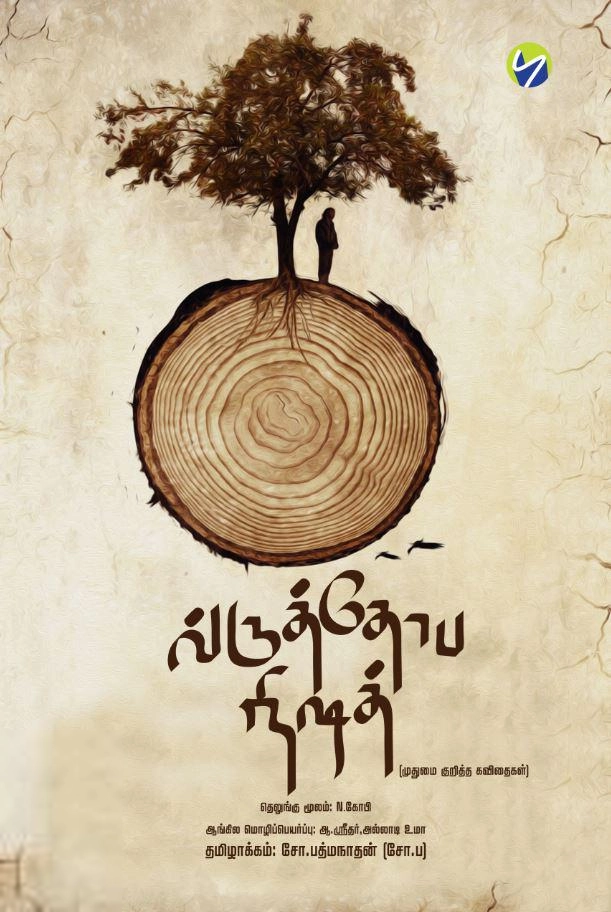 வ்ருத்தோப
நிஷத்
(முதுமை குறித்த கவிதைகள்)
தெலுங்கு மூலம்: N.கோபி
ஆங்கில மொழிப்பெயர்ப்பு: ஆ.ஸ்ரீதர்,அல்லாடி உமா
தமிழாக்கம்: சோ.பத்மநாதன் (சோ.ப)